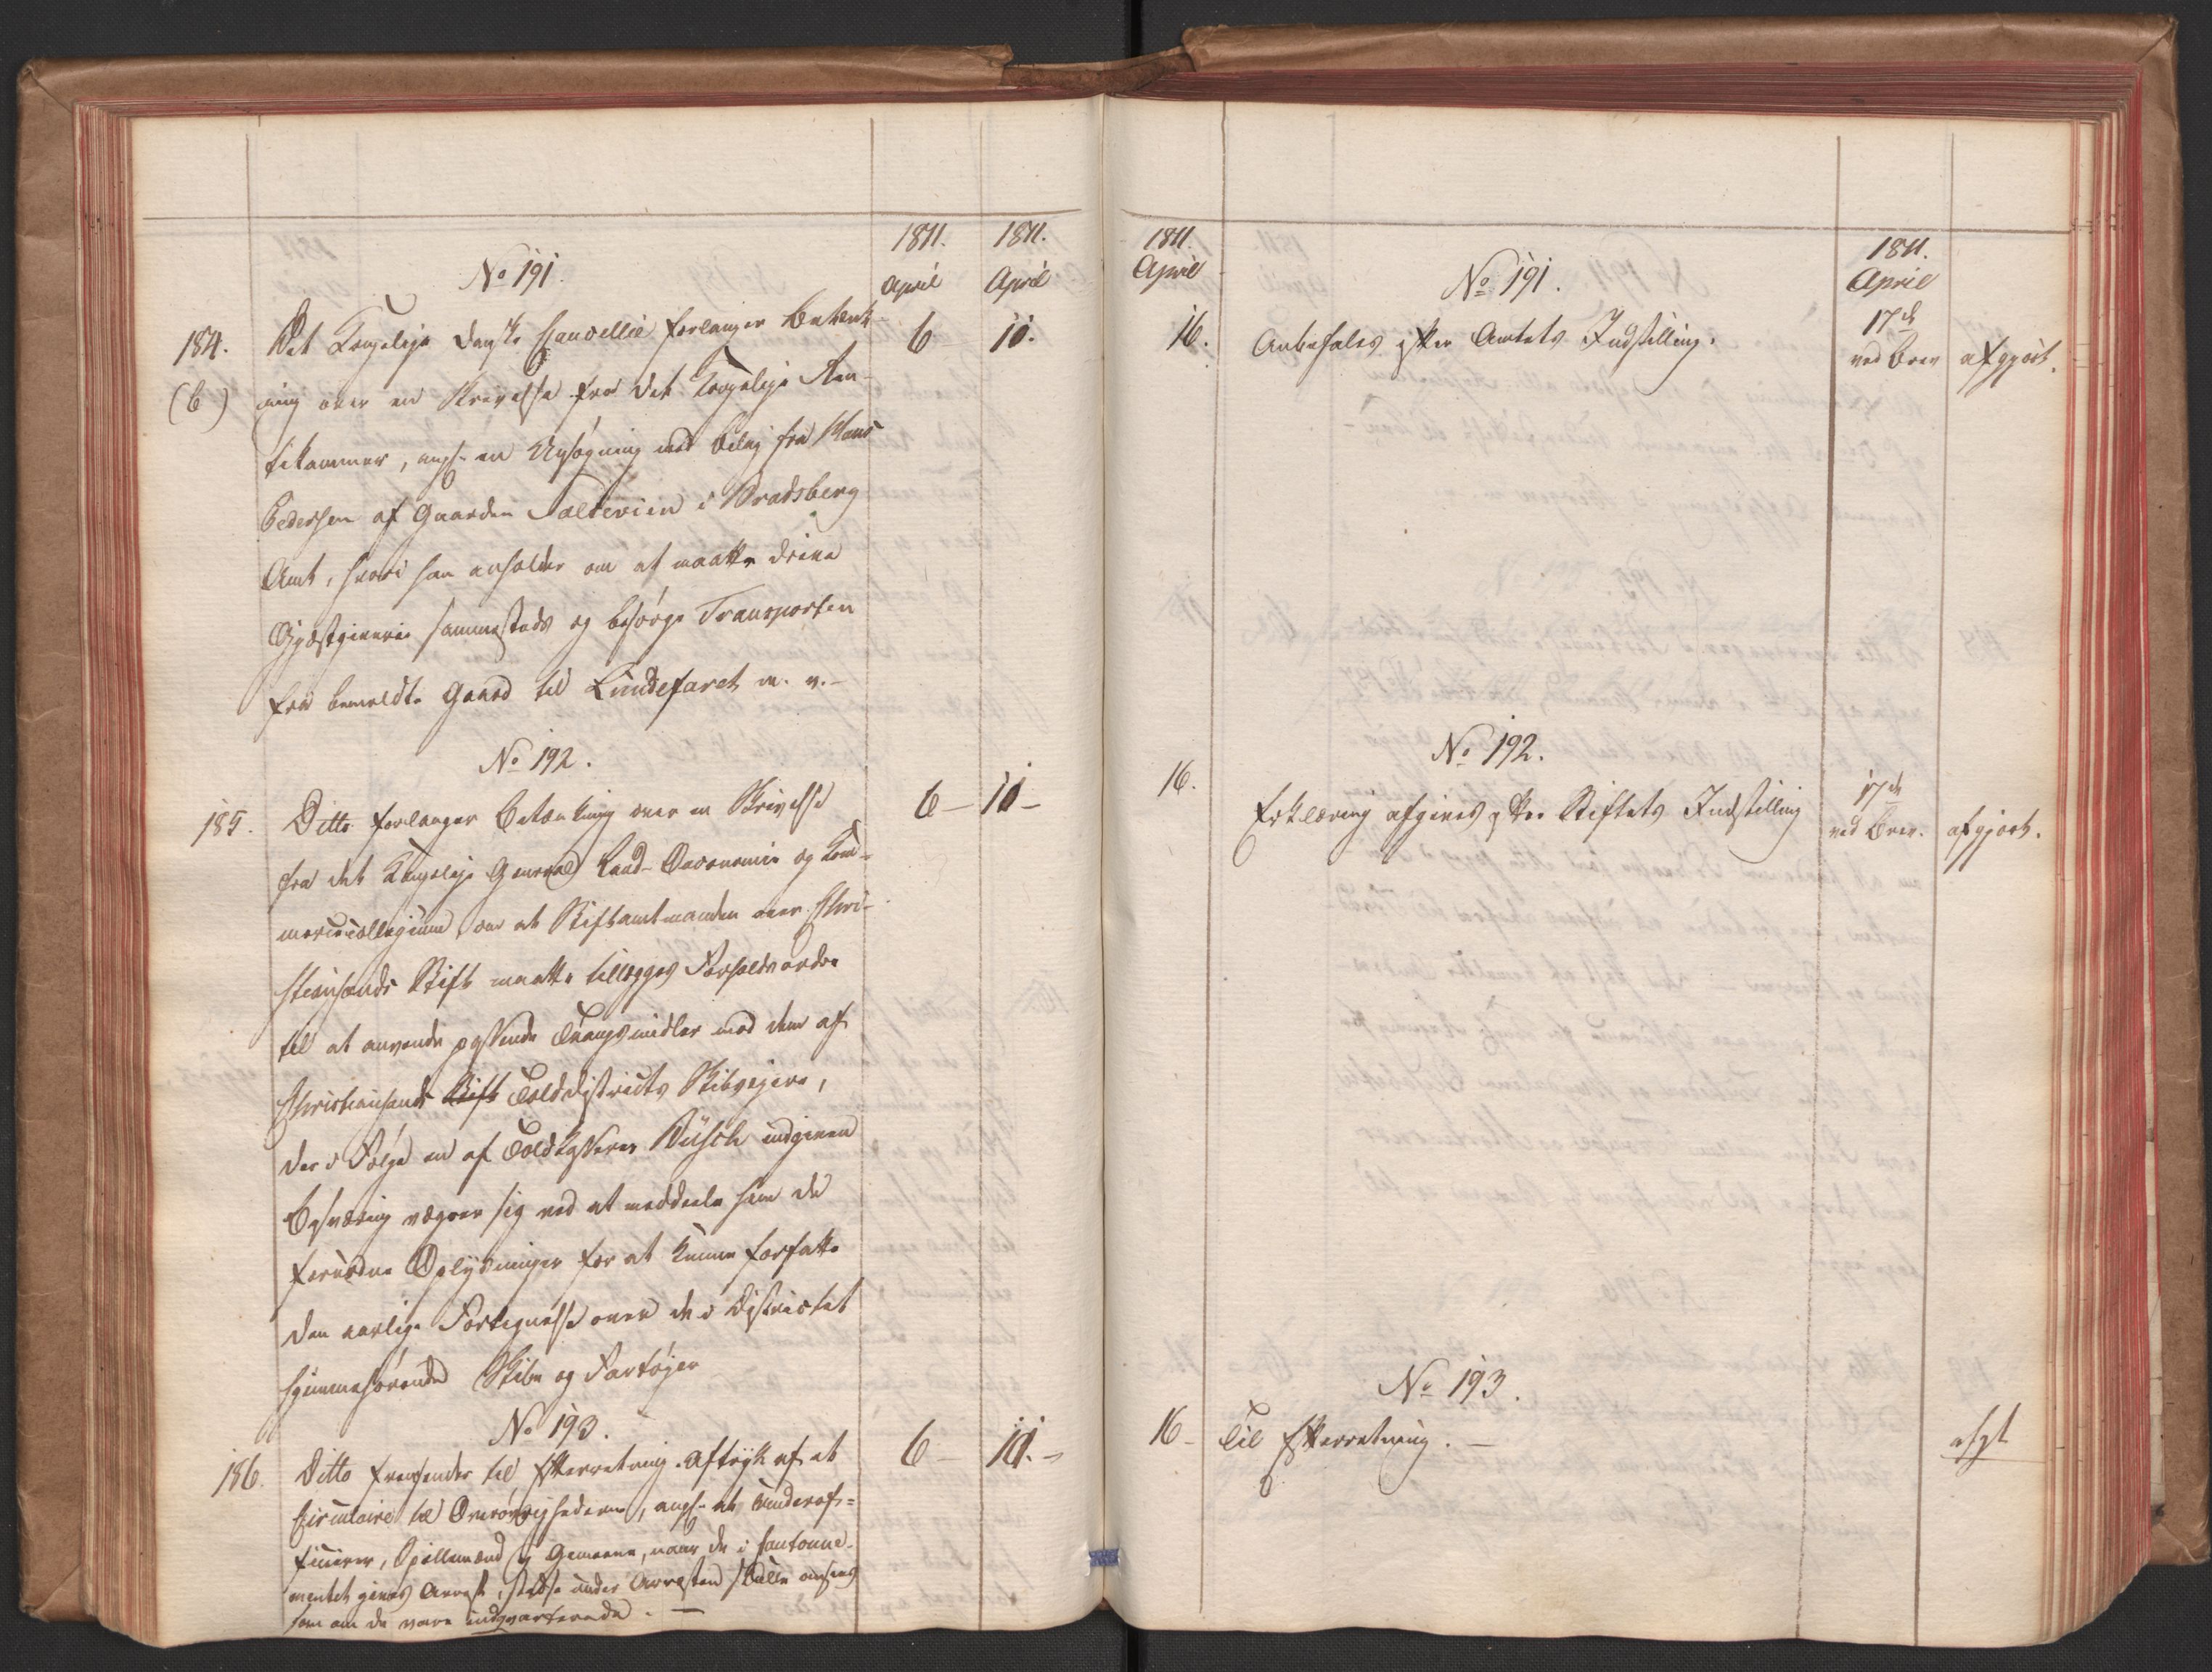 1811. 1811.
April April
No 191.
184. Det Kongelige Danske Cancellie forlanger Betænk- 6 11.
(b) ning over en Skrivelse fra det Kongelige Ren-
tekammer, angl. en Ansøgning med Bilag fra Hans
Pedersen af Gaarden i Bradsberg
Amt, hvori han anholder om at maatte drive
Gjæstgiverie sammesteds og besørge Transporten
fra bemeldte Gaard til Lundefaret m. v.-
No 192.
185. Ditto forlanger Betænkning over en Skrivelse 6 - 11 -
fra det Kongelige General Land-Oeconomie og Com-
merce-collegium, om at Stiftamtmanden over Chri-
stiansands Stift maatte tillægges Forholdsordre
til at anvende passende Tvangsmidler mod dem af
Christiansands Stift Tolddistricts Skibsejere,
der i Følge en af Toldkasserer Büsch indgiven
Besværing vægrer sig ved at meddeele ham de
fornødne Oplysninger for at kunne forfatte
den aarlige Fortegnelse over de i Districtet
hjemmehørende Skibe og Fartøjer
No 193.
186. Ditto fremsender til Efterretning Aftryk af et 6 - 11. -
Circulaire til Overøvrighederne, angl. at Underof-
ficierer, Spillemænd og Gemeene, naar de i Cantonne-
mentet gives Arrest, stedse under Arresten skulle ansees
som om de vare indqvarterede. -
1811. 1811.
April April
No 191.
16. Anbefales efter Amtets Indstilling. 17de
ved Brev afgjort.
No 192.
16. Erklæring afgives efter Stiftets Indstilling 17de
ved Brev. afgjort.
No 193.
16 - Til Efterretning. - afgt